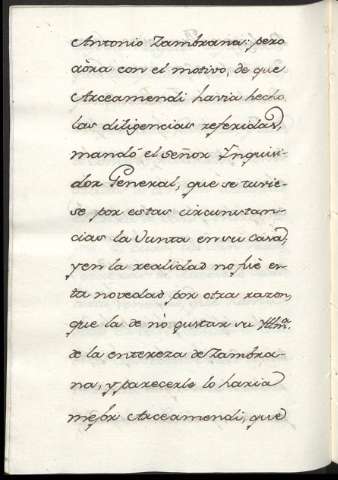 Antonio Zambrana: pero
aòra con el motivo, de que
Arceamendi havia hecho
las diligencias referidas,
mandó el Señor Ynquisi-
dor General, que se tuvie-
se por estas circunstan-
cias la Junta en su Casa,
y en la realidad no fuè es-
ta novedad por otra razon,
que la de nò gustar su Yllmȧ.
de la entereza de Zambra-
na, y parecerle lo haria
mejor Arceamendi, que